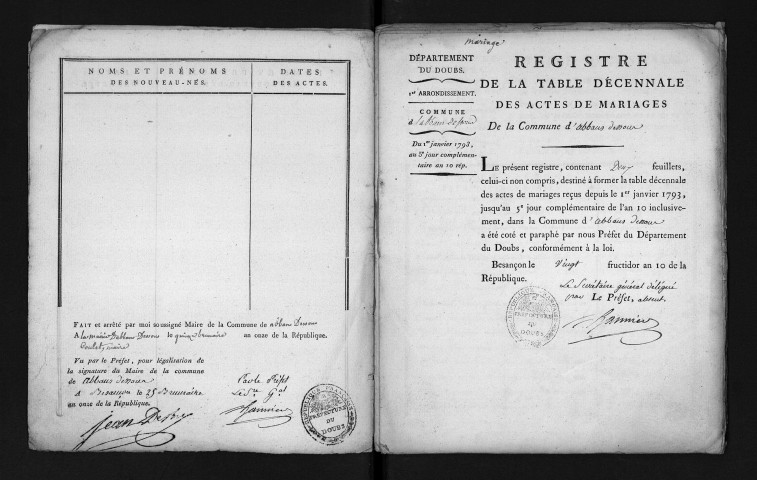 NOMS ET PRÉNOMS
DES NOUVEAU-NÉS.
DATES
DES ACTES.
FAIT et arrêté par moi soussigné Maire de la Commune de abbans Dessous
A la mairie d'abbans Dessous le quinze brumaire an onze de la République.
maire
Vu par le Préfet, pour légalisation de
la signature du Maire de la commune
de abbans dessous
A Besançon le 25 Brumaire
an onze de la République.
Pour le Préfet
Le S.re G.al
Hannier
Jean Debry
RÉPUBLIQUE FRANÇAISE
PRÉFECTURE
DU
DOUBS
mariage
DÉPARTEMENT
DU DOUBS.
1er ARRONDISSEMENT.
COMMUNE
d'abbans dessous
Du 1er janvier 1793,
au 5e jour complémen-
taire an 10 rép.
REGISTRE
DE LA TABLE DÉCENNALE
DES ACTES DE MARIAGES
De la Commune d'abbans dessous
LE présent registre, contenant Deux feuillets,
celui-ci non compris, destiné à former la table décennale
des actes de mariages reçus depuis le 1er janvier 1793,
jusqu'au 5e jour complémentaire de l'an 10 inclusive-
ment, dans la Commune d'abbans dessous
a été coté et paraphé par nous Préfet du Département
du Doubs, conformément à la loi.
Besançon le Vingt fructidor an 10 de la
République.
Le Secrétaire général délégué
par Le Préfet, absent.
Hannier
RÉPUBLIQUE FRANÇAISE
PRÉFECTURE
DU
DOUBS